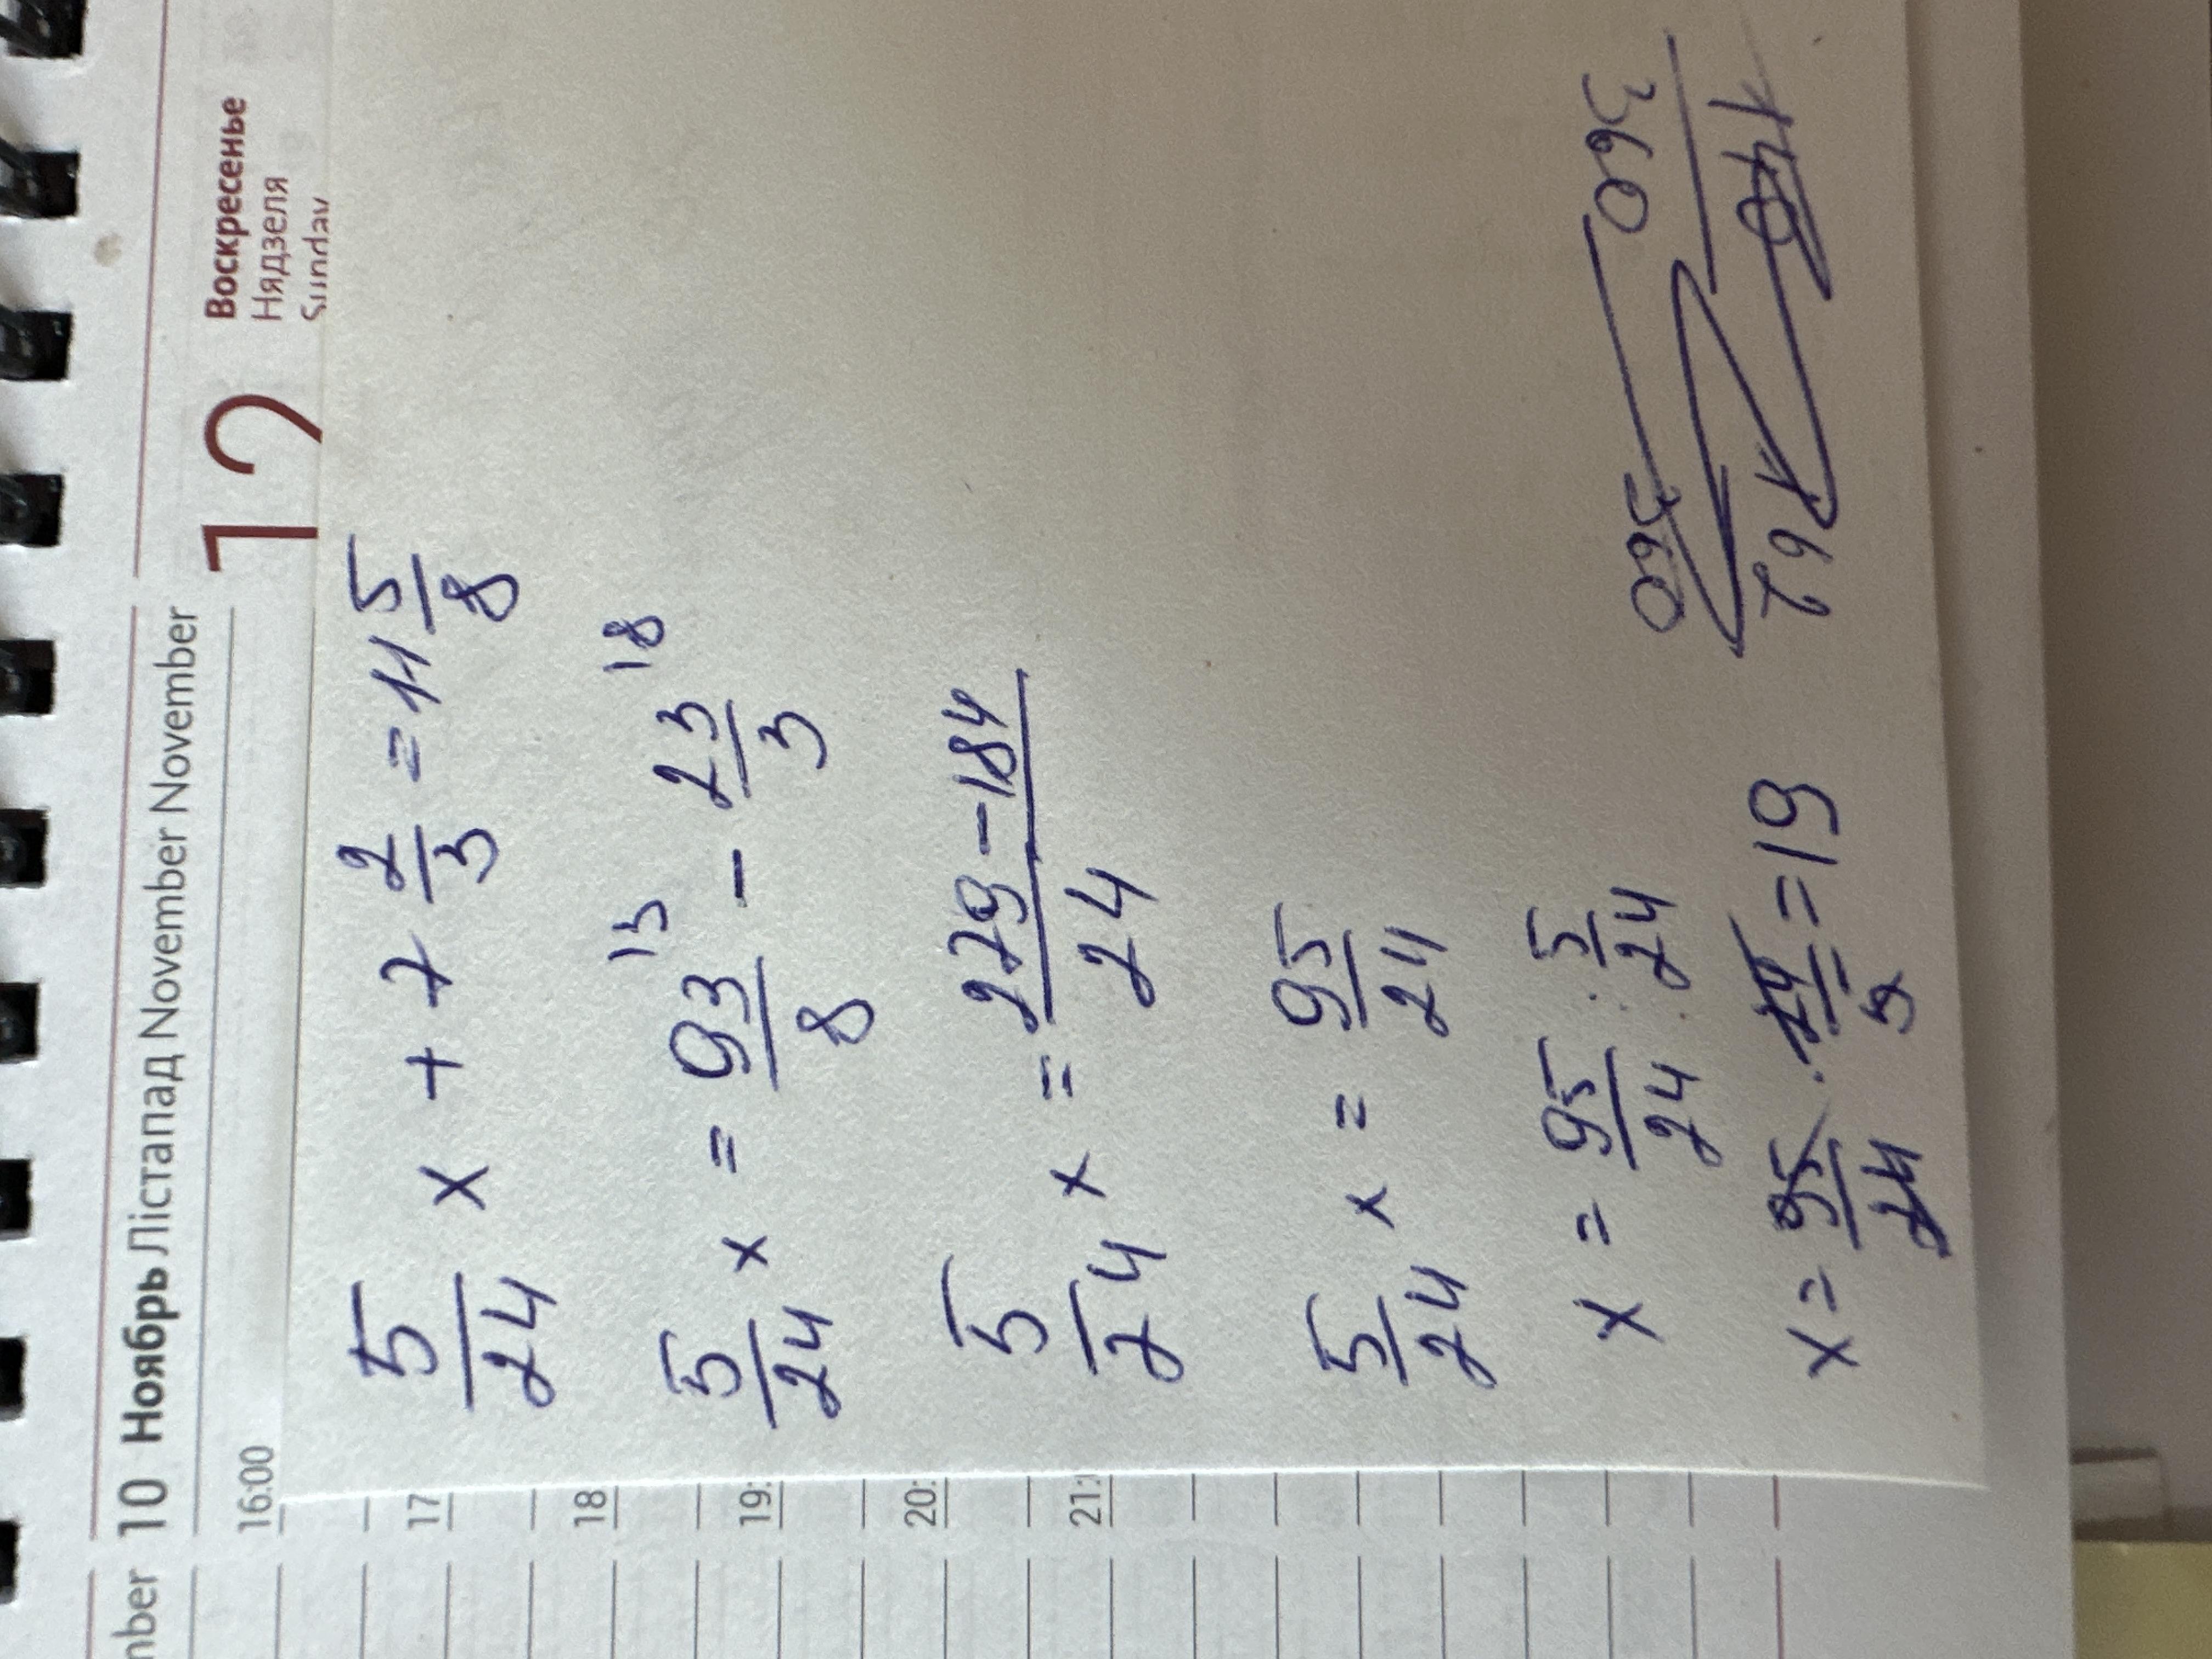 mber 10 Ноябрь Лістапад November November
12 Воскресенье
Нядзеля
Sunday
16:00
17
18
19:
20:
21:
5/24 x + 7 2/3 = 11 5/8
5/24 x = 93/8 ¹³ - 23/3 ¹⁸
5/24 x = 279-184/24
5/24 x = 95/24
x = 95/24 : 5/24
x = 95/24 · 24/5 = 19
360
360
162